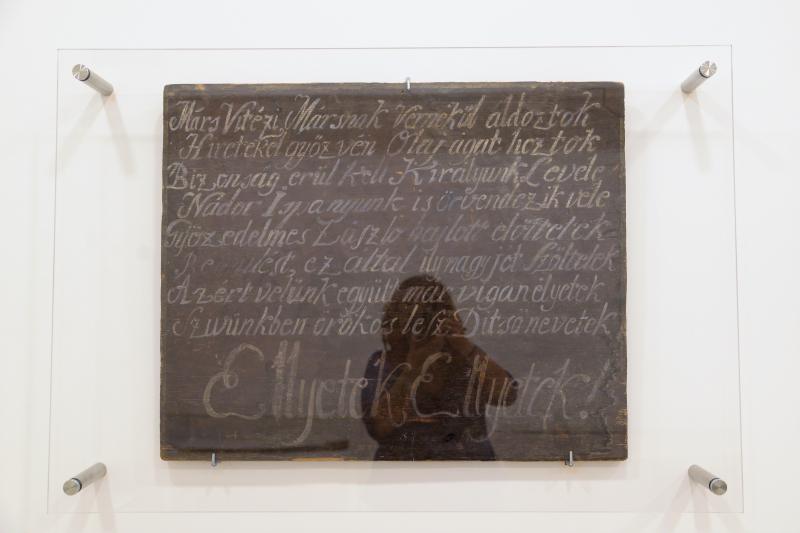 Márs Vitézi, Mársnak Vérrekül áldoztok
Hireteket győzvén Olaj ágat hoztok
Bizonság erül kelt Királyunk Levele
Nádor Ispanyunk is örvendezik vele
Győzedelmes Zászló hajlott előttetek
ez által illy nagy jót Szültetek
Azért velünk együtt már vigan éljetek
Szivünkben örökös lesz Ditső nevetek
Ellyetek, Ellyetek!